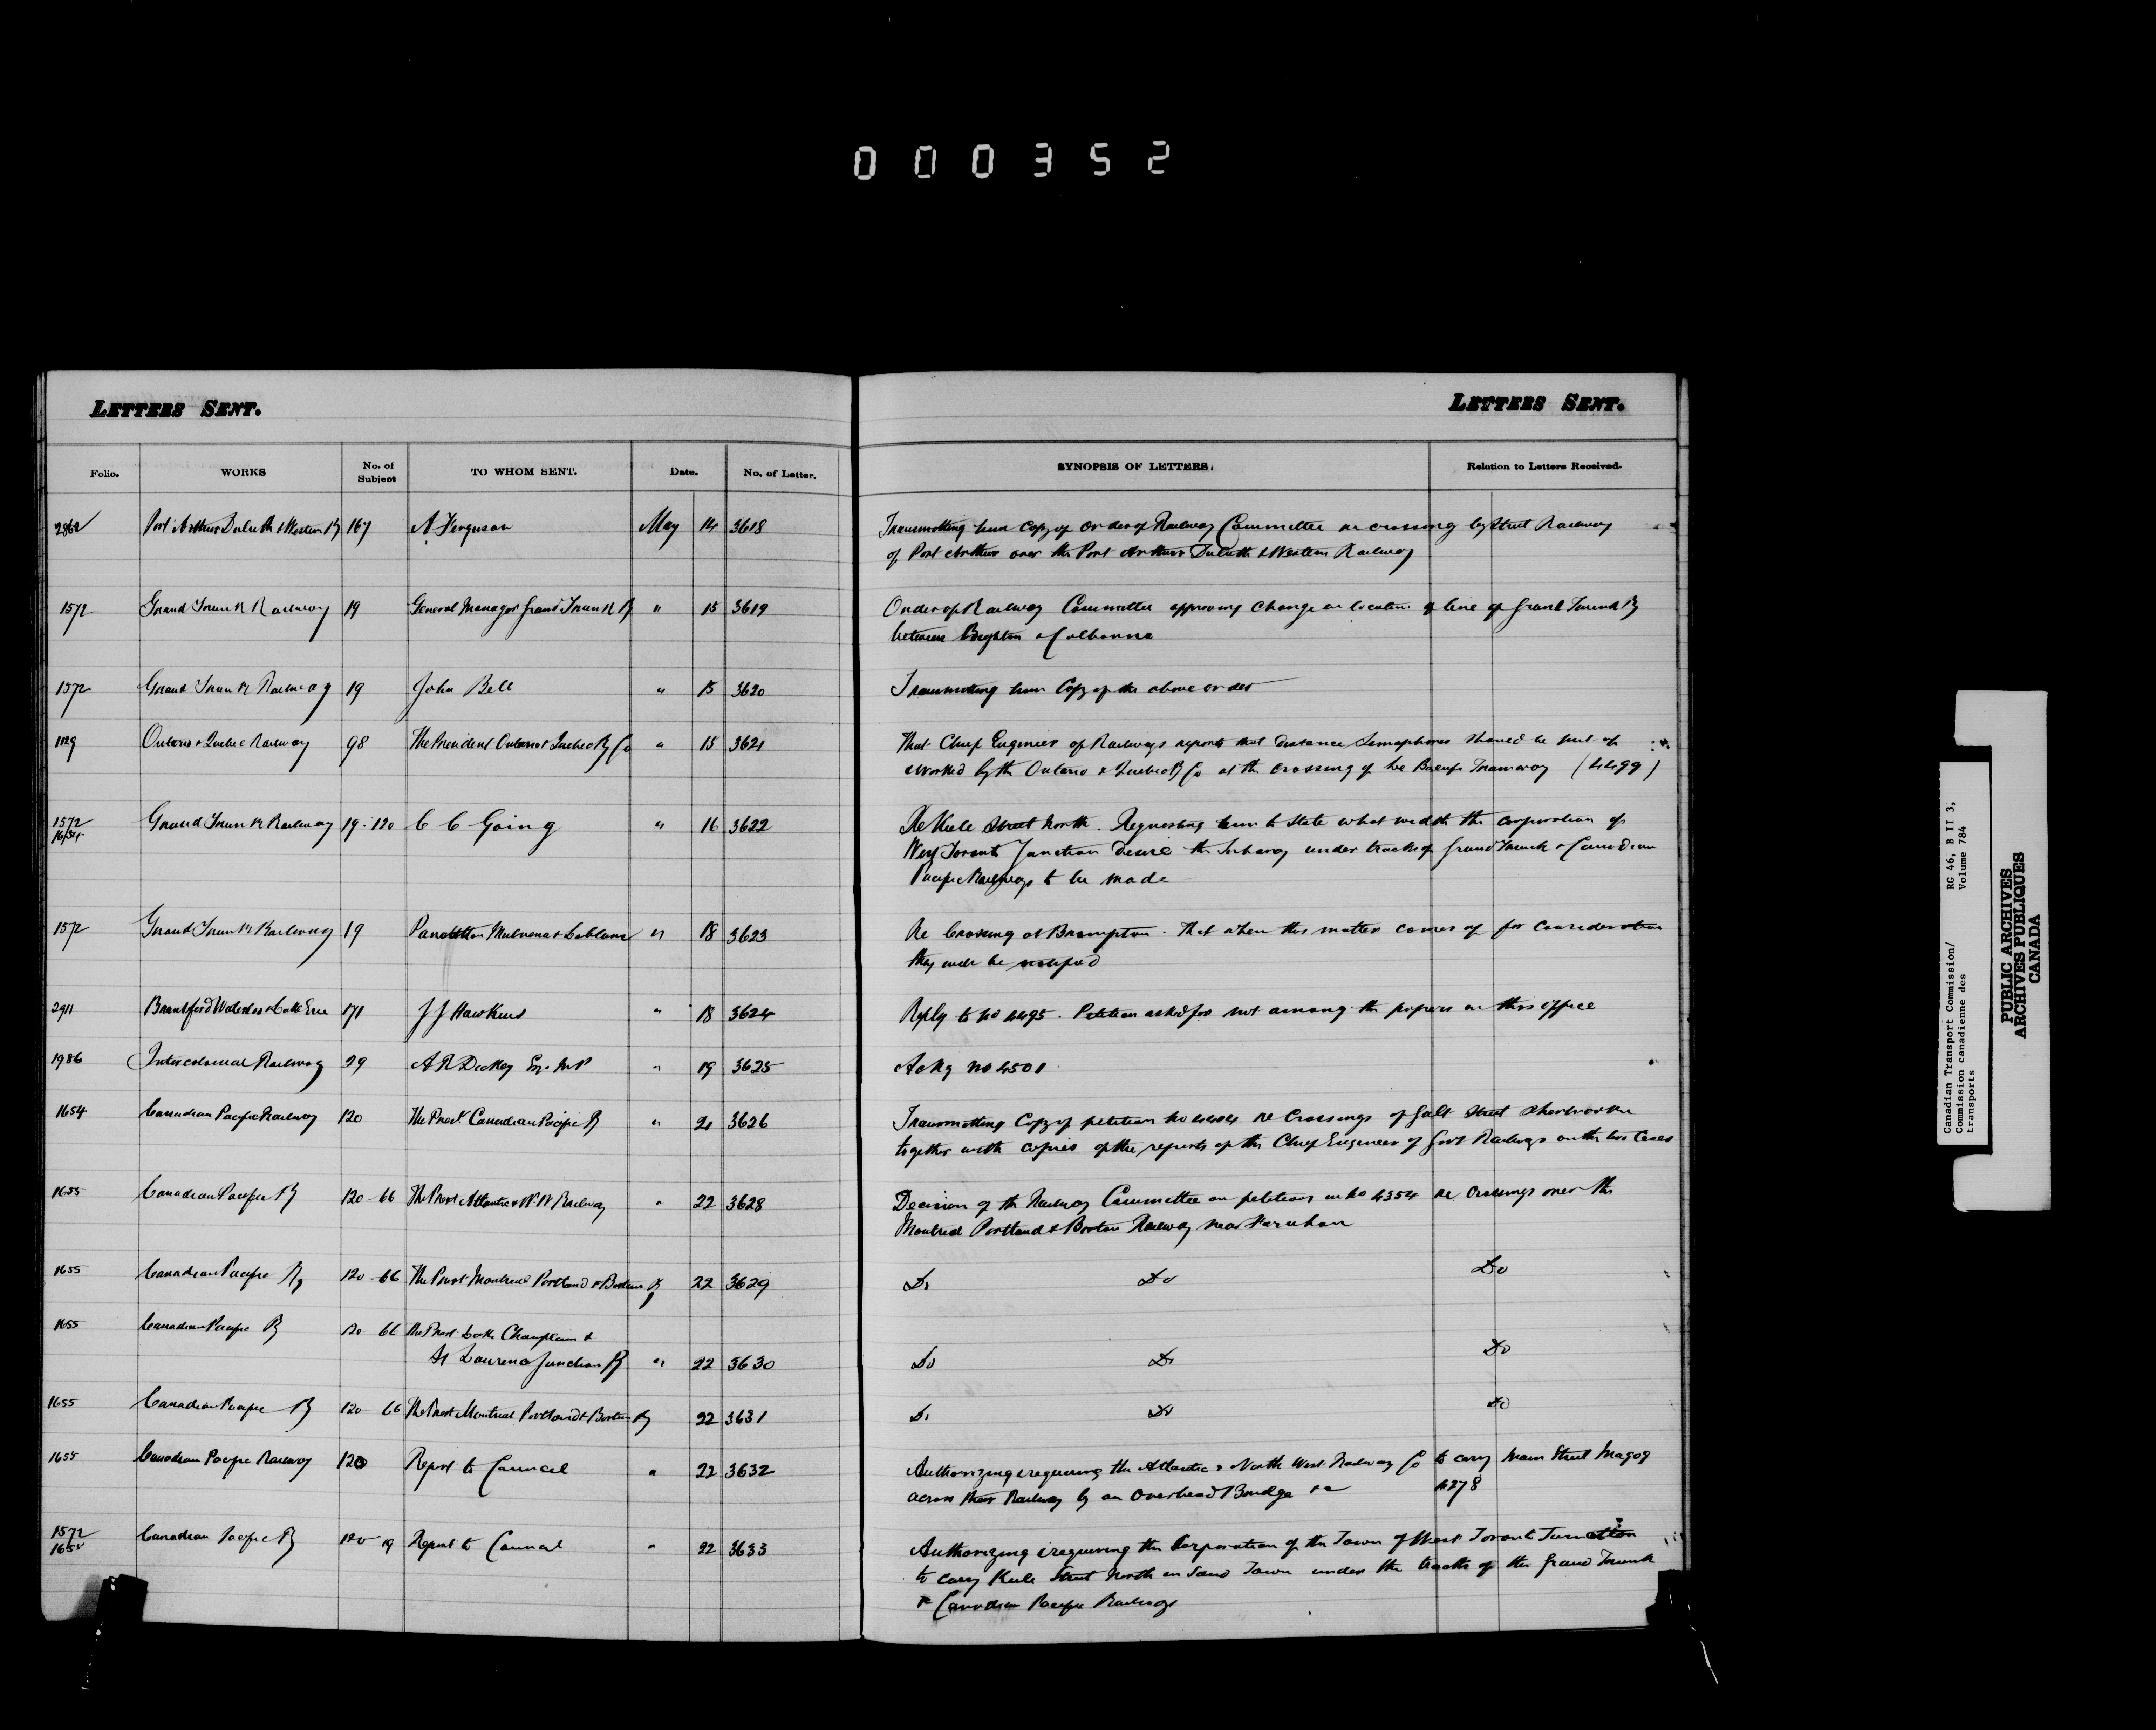 000352
LETTERS SENT.
LETTERS SENT.
Folio. WORKS No. of Subject TO WHOM SENT. Date. No. of Letter. SYNOPSIS OF LETTERS. Relation to Letters Received.
2862 Port Arthur Duluth & Western Ry 167 A Ferguson May 14 3618 Transmitting him Copy of order of Railway Committee re crossing by Street Railway
of Port Arthur over the Port Arthur Duluth & Western Railway
1572 Grand Trunk Railway 19 General Manager Grand Trunk Ry " 15 3619 Order of Railway Committee approving change in location of line of Grand Trunk Ry
between Brighton & Colborne
1572 Grand Trunk Railway 19 John Bell " 15 3620 Transmitting him Copy of the above order
1129 Ontario & Quebec Railway 98 The President Ontario & Quebec Ry Co " 15 3621 That Chief Engineer of Railways reports that Distance Semaphores should be put up
& worked by the Ontario & Quebec Ry Co at the crossing of the Tramway (4499)
1572 Grand Trunk Railway 19-120 C C Going " 16 3622 Re Keele Street North. Requesting him to state what width the corporation of
West Toronto Junction desire the Subway under tracks of Grand Trunk & Canadian
Pacific Railways to be made
1572 Grand Trunk Railway 19 Mulvena & Leblanc " 18 3623 Re Crossing at Brompton. That when this matter comes up for consideration
they will be notified
2911 Brantford Waterloo & Lake Erie 171 J J Hawkins " 18 3624 Reply to No 4495. Petition asked for not among the papers in this office
1986 Intercolonial Railway 29 A R Dickey Esq. M P " 19 3625 Ackg no 4501
1654 Canadian Pacific Railway 120 The Prest. Canadian Pacific Ry " 21 3626 Transmitting Copy of petition No 4484 re Crossings of Galt Street Sherbrooke
together with copies of the reports of the Chief Engineer of Govt Railways on the two Cases
1655 Canadian Pacific Ry 120-66 The Prest Atlantic & N.W Railway " 22 3628 Decision of the Railway Committee on petitions in No 4354 re Crossings over the
Montreal Portland & Boston Railway near Farnham
1655 Canadian Pacific Ry 120-66 The Prest Montreal Portland & Boston Ry 22 3629 Do Do Do
1655 Canadian Pacific Ry 120 66 The Prest Lake Champlain &
St Lawrence Junction Ry " 22 3630 Do Do Do
1655 Canadian Pacific Ry 120 66 The Prest Montreal Portland & Boston Ry 22 3631 Do Do Do
1655 Canadian Pacific Railway 120 Report to Council " 22 3632 Authorizing & requiring the Atlantic & North West Railway Co to carry Main Street Magog
across their Railway by an Overhead Bridge &c 4278
1572
1655 Canadian Pacific Ry 120 19 Report to Council " 22 3633 Authorizing & requiring the Corporation of the Town of West Toronto Junction
to carry Keele Street North in said Town under the tracks of the Grand Trunk
& Canadian Pacific Railways
Canadian Transport Commission/
Commission canadienne des
transports
RG 46, B II 3,
Volume 784
PUBLIC ARCHIVES
ARCHIVES PUBLIQUES
CANADA